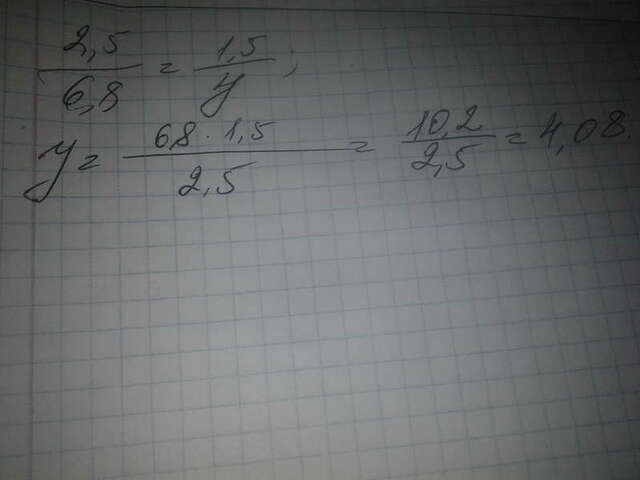 2,5/6,8 = 1,5/y ;
y = 6,8 · 1,5/2,5 = 10,2/2,5 = 4,08.